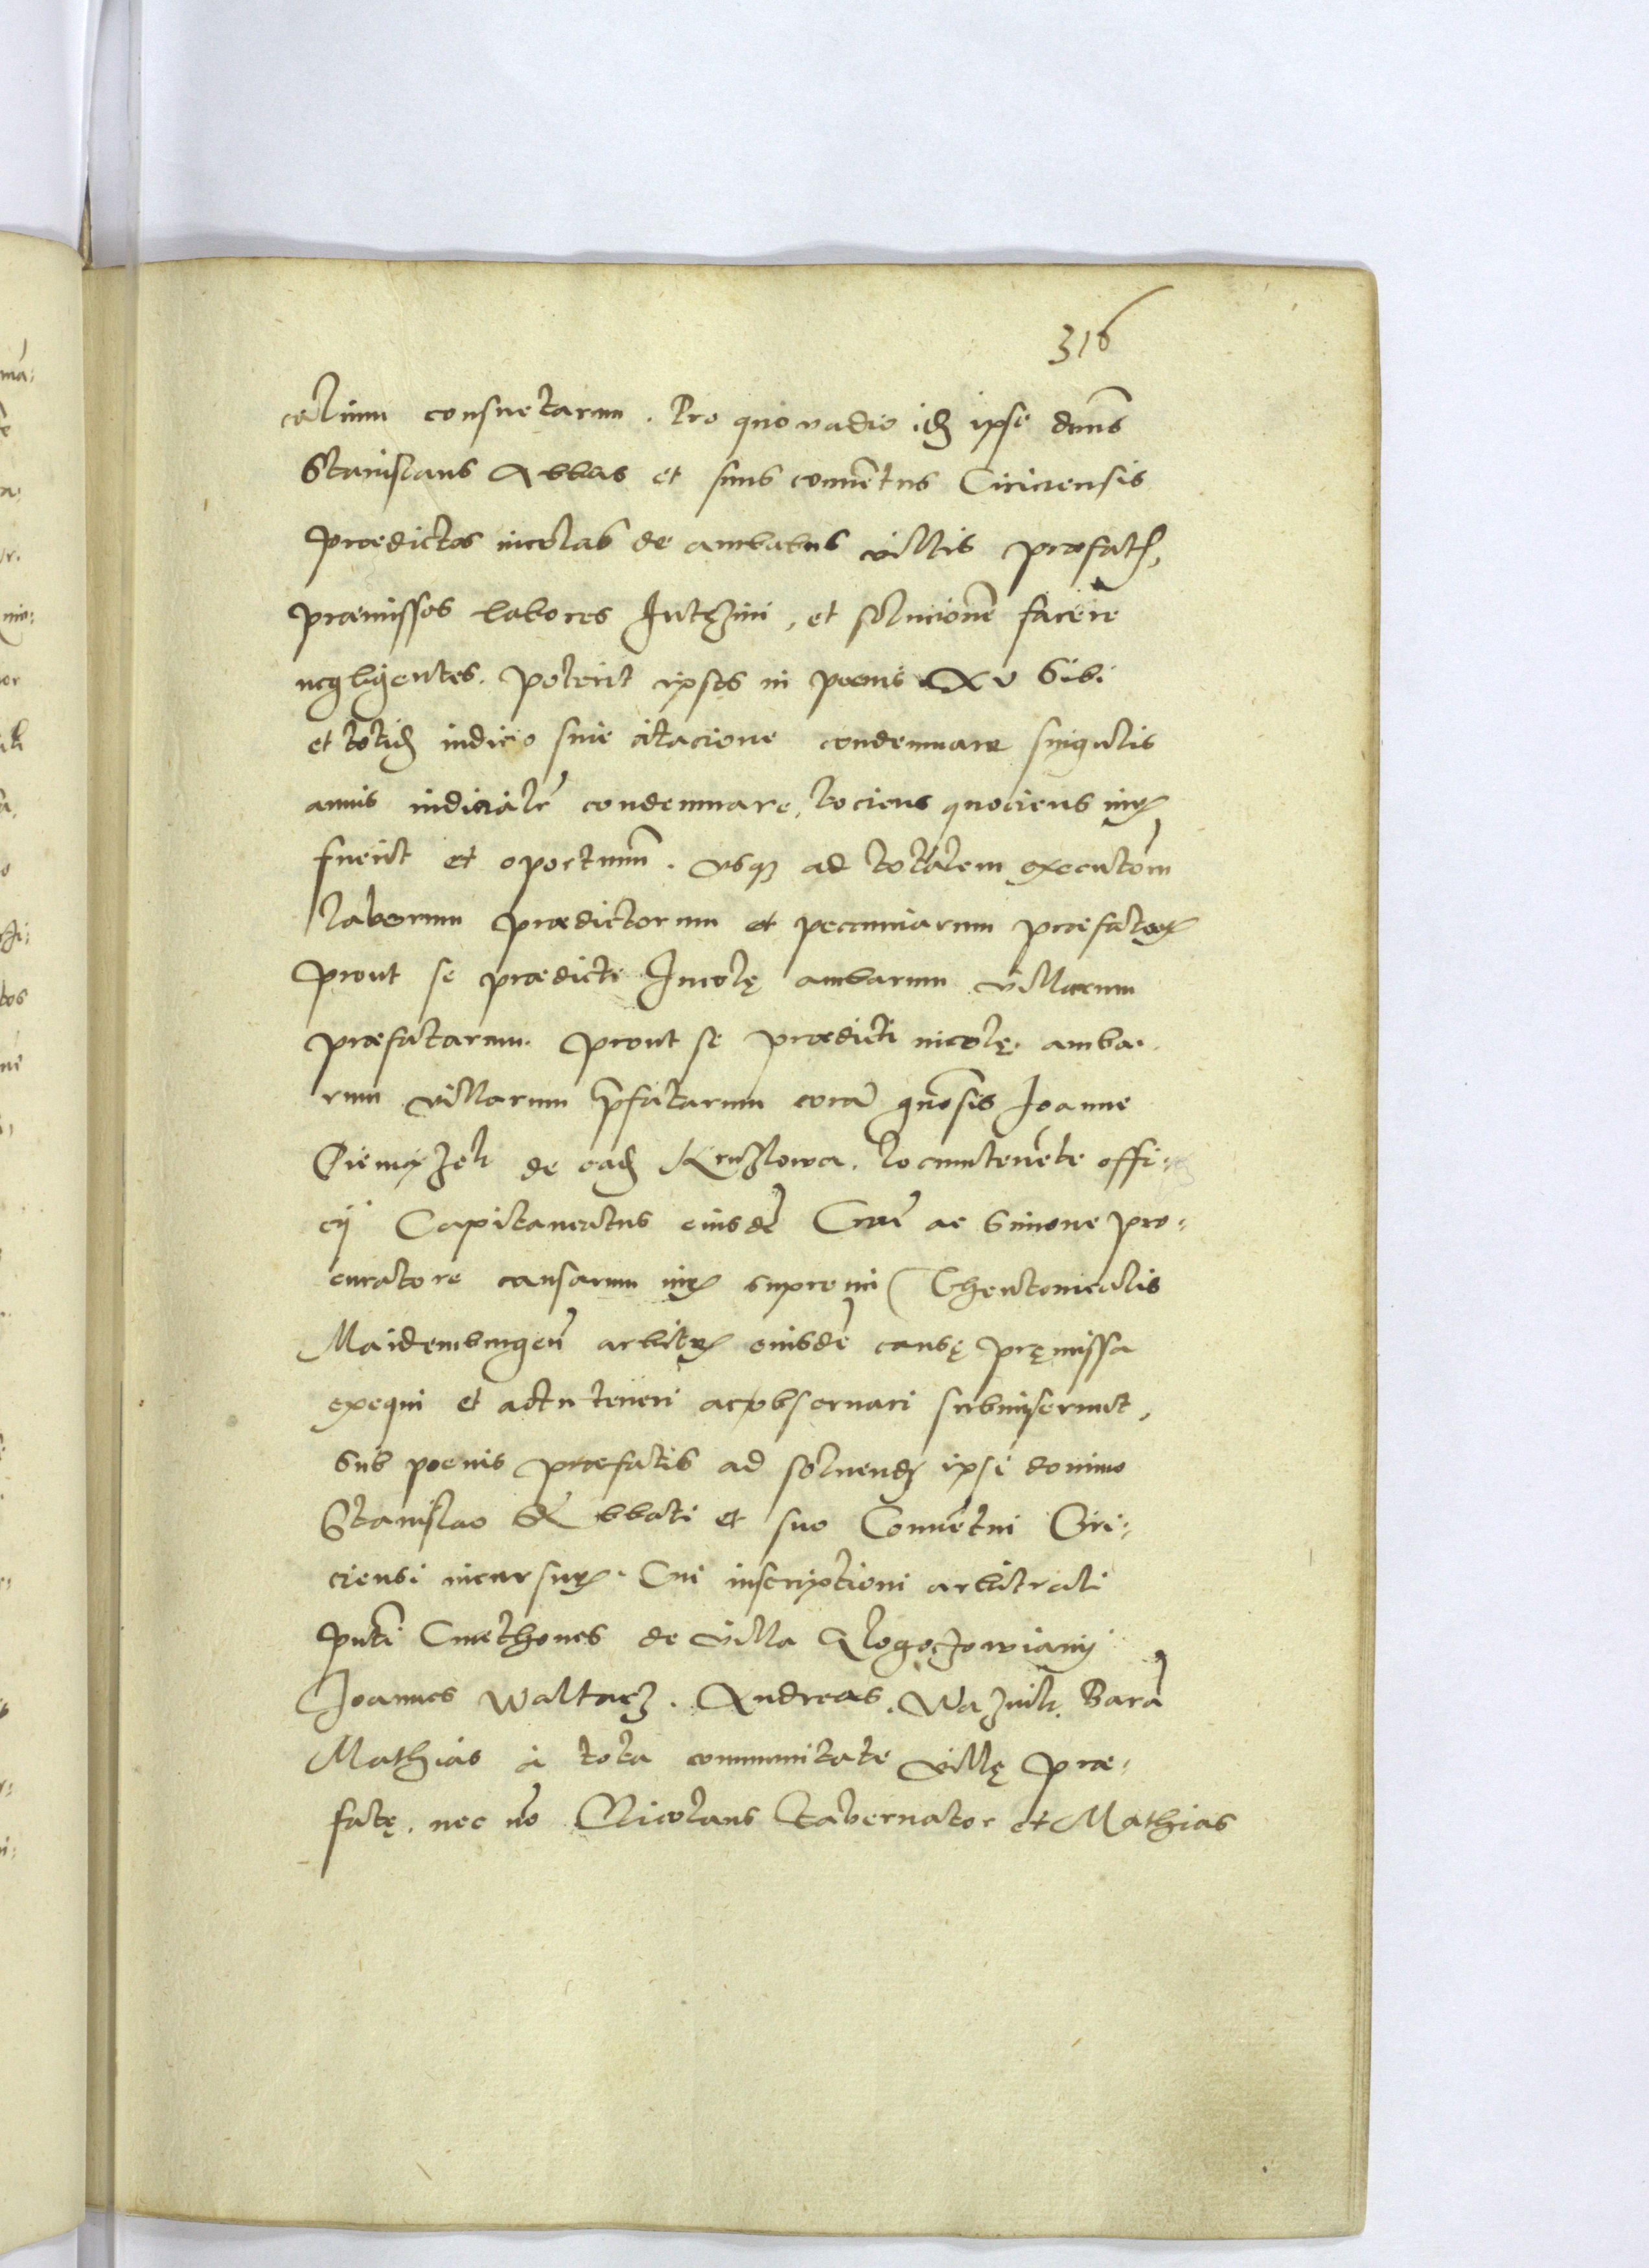 316
calium consuetarum. Pro quo vadio idem ipse dnus
Stanislaus Abbas et suus conventus Ciriciensis
prædictos incolas de ambabus villis præfatis,
præmissos labores Jutrzini, et solucionē facere
negligentes. poterit ipsos in poenis XV Sibi
et totidem iudicio sine citacione condemnare singulis
annis iudicialr̄ condemnare, tociens quociens
fuerit et oportunū. usque ad totalem executom̄
laborum prædictorum et pecuniarum præfatorum
prout se prædicte Incolę ambarum villarum
præfatarum. prout se prædicti incolę. amba-
rum villarum p̄fatarum corā gn̄osis Joanne
de eadem Kruzlowa. locumtenēte offi:
cij Capitaneatus eiusdē Crac̄ ac Simone pro:
curatore causarum iuris supremi Theutonicalis
Maidemburgen̄ arbitris eiusdē causę pręmissa
exequi et actu teneri ac observari submiserunt,
Sub poenis præfatis ad solvendum ipsi domino
Stanislao Abbati et suo Convētui Ciri:
ciensi incursuris. Cui inscriptioni arbitrali
pn̄ti Cmethones de villa Glogozowiany
Joannes Waltacz. Andreas. Waznik. Barā
Mathias a tota communitate villę præ:
fatę. nec nō Nicolaus Tabernator et Mathias